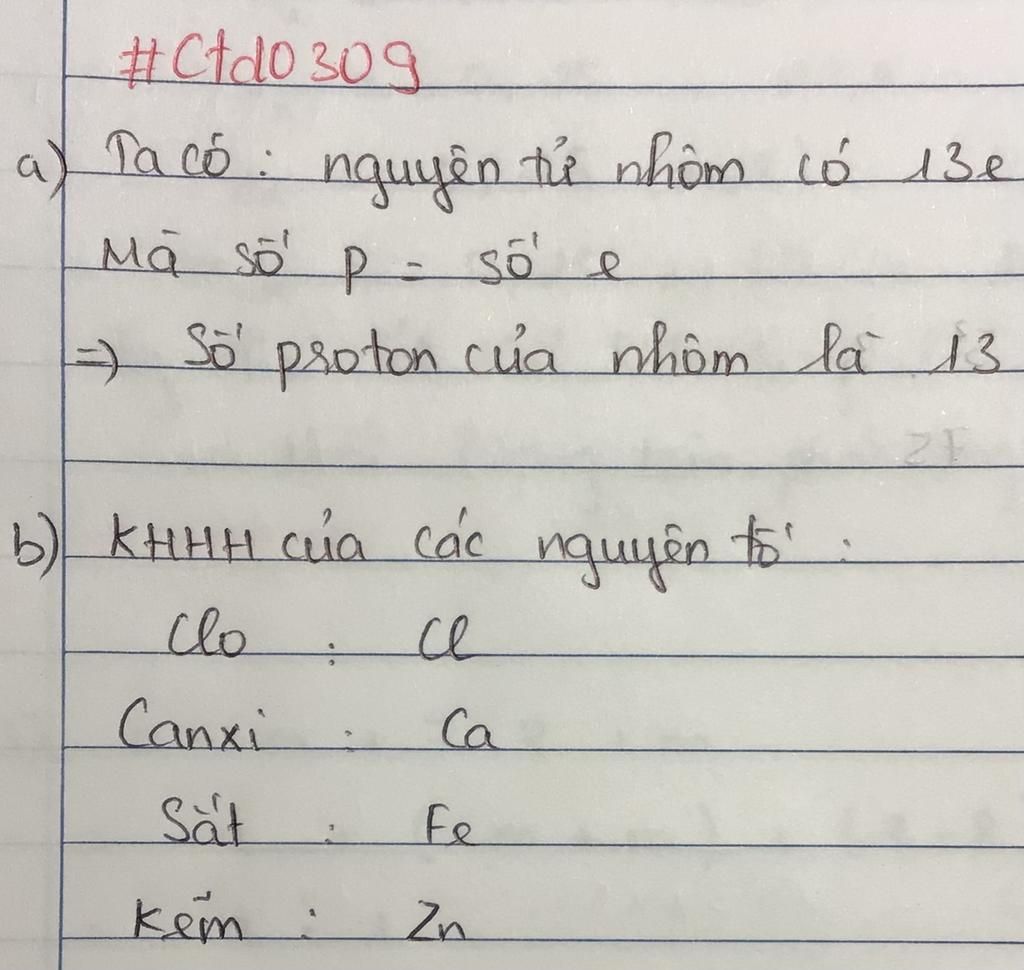 #Ctd0309
a) Ta có : nguyên tử nhôm có 13e
Mà số p = số e
=> Số proton của nhôm là 13
b) KHHH của các nguyên tố :
Clo : Cl
Canxi : Ca
Sắt : Fe
Kẽm : Zn